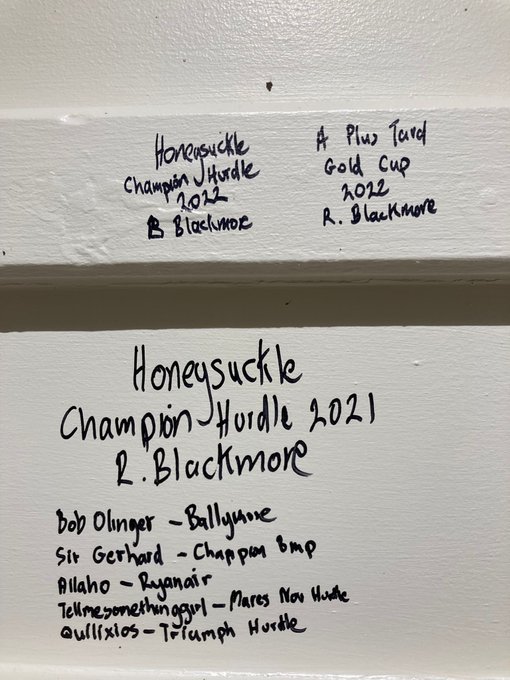 Honeysuckle
Champion Hurdle
2022
B Blackmore
A Plus Tard
Gold Cup
2022
R. Blackmore
Honeysuckle
Champion Hurdle 2021
R. Blackmore
Bob Olinger - Ballymore
Sir Gerhard - Champion Bmp
Allaho - Ryanair
Tellmesomethinggirl - Mares Nov Hurdle
Quilixios - Triumph Hurdle